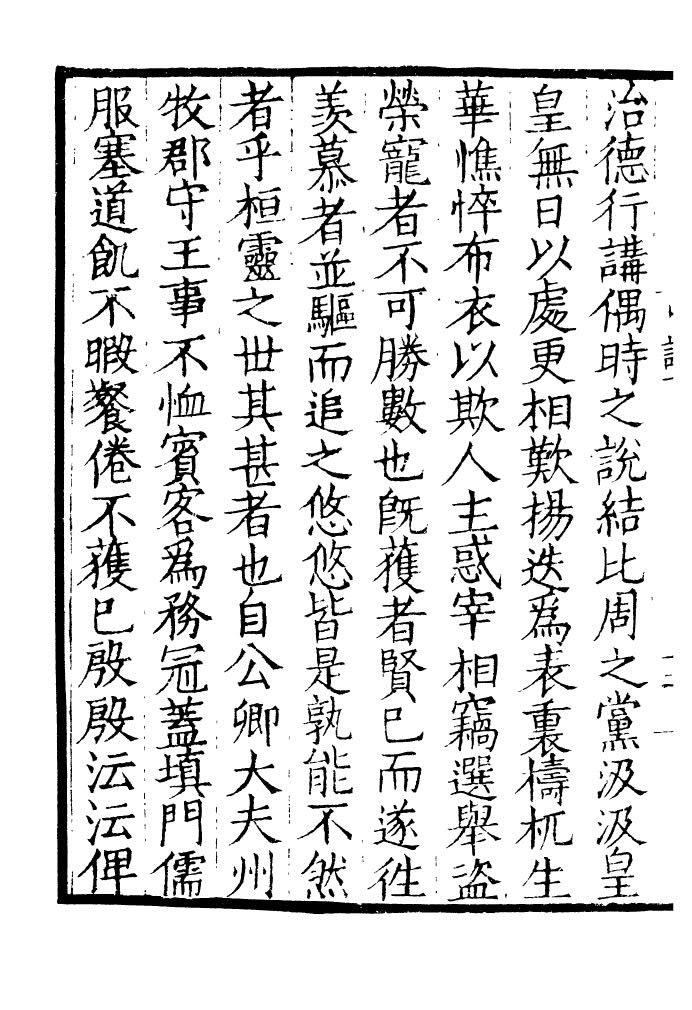 治德行講偶時之說結比周之黨汲汲皇
皇無日以處更相歎揚迭爲表裏檮杌生
華憔悴布衣以欺人主惑宰相竊選舉盜
榮寵者不可勝數也旣獲者賢已而遂徃
羡慕者並驅而追之悠悠皆是孰能不然
者乎桓靈之世其甚者也自公卿大夫州
牧郡守王事不恤賓客爲務冠蓋塡門儒
服塞道飢不暇餐倦不獲已殷殷沄沄俾